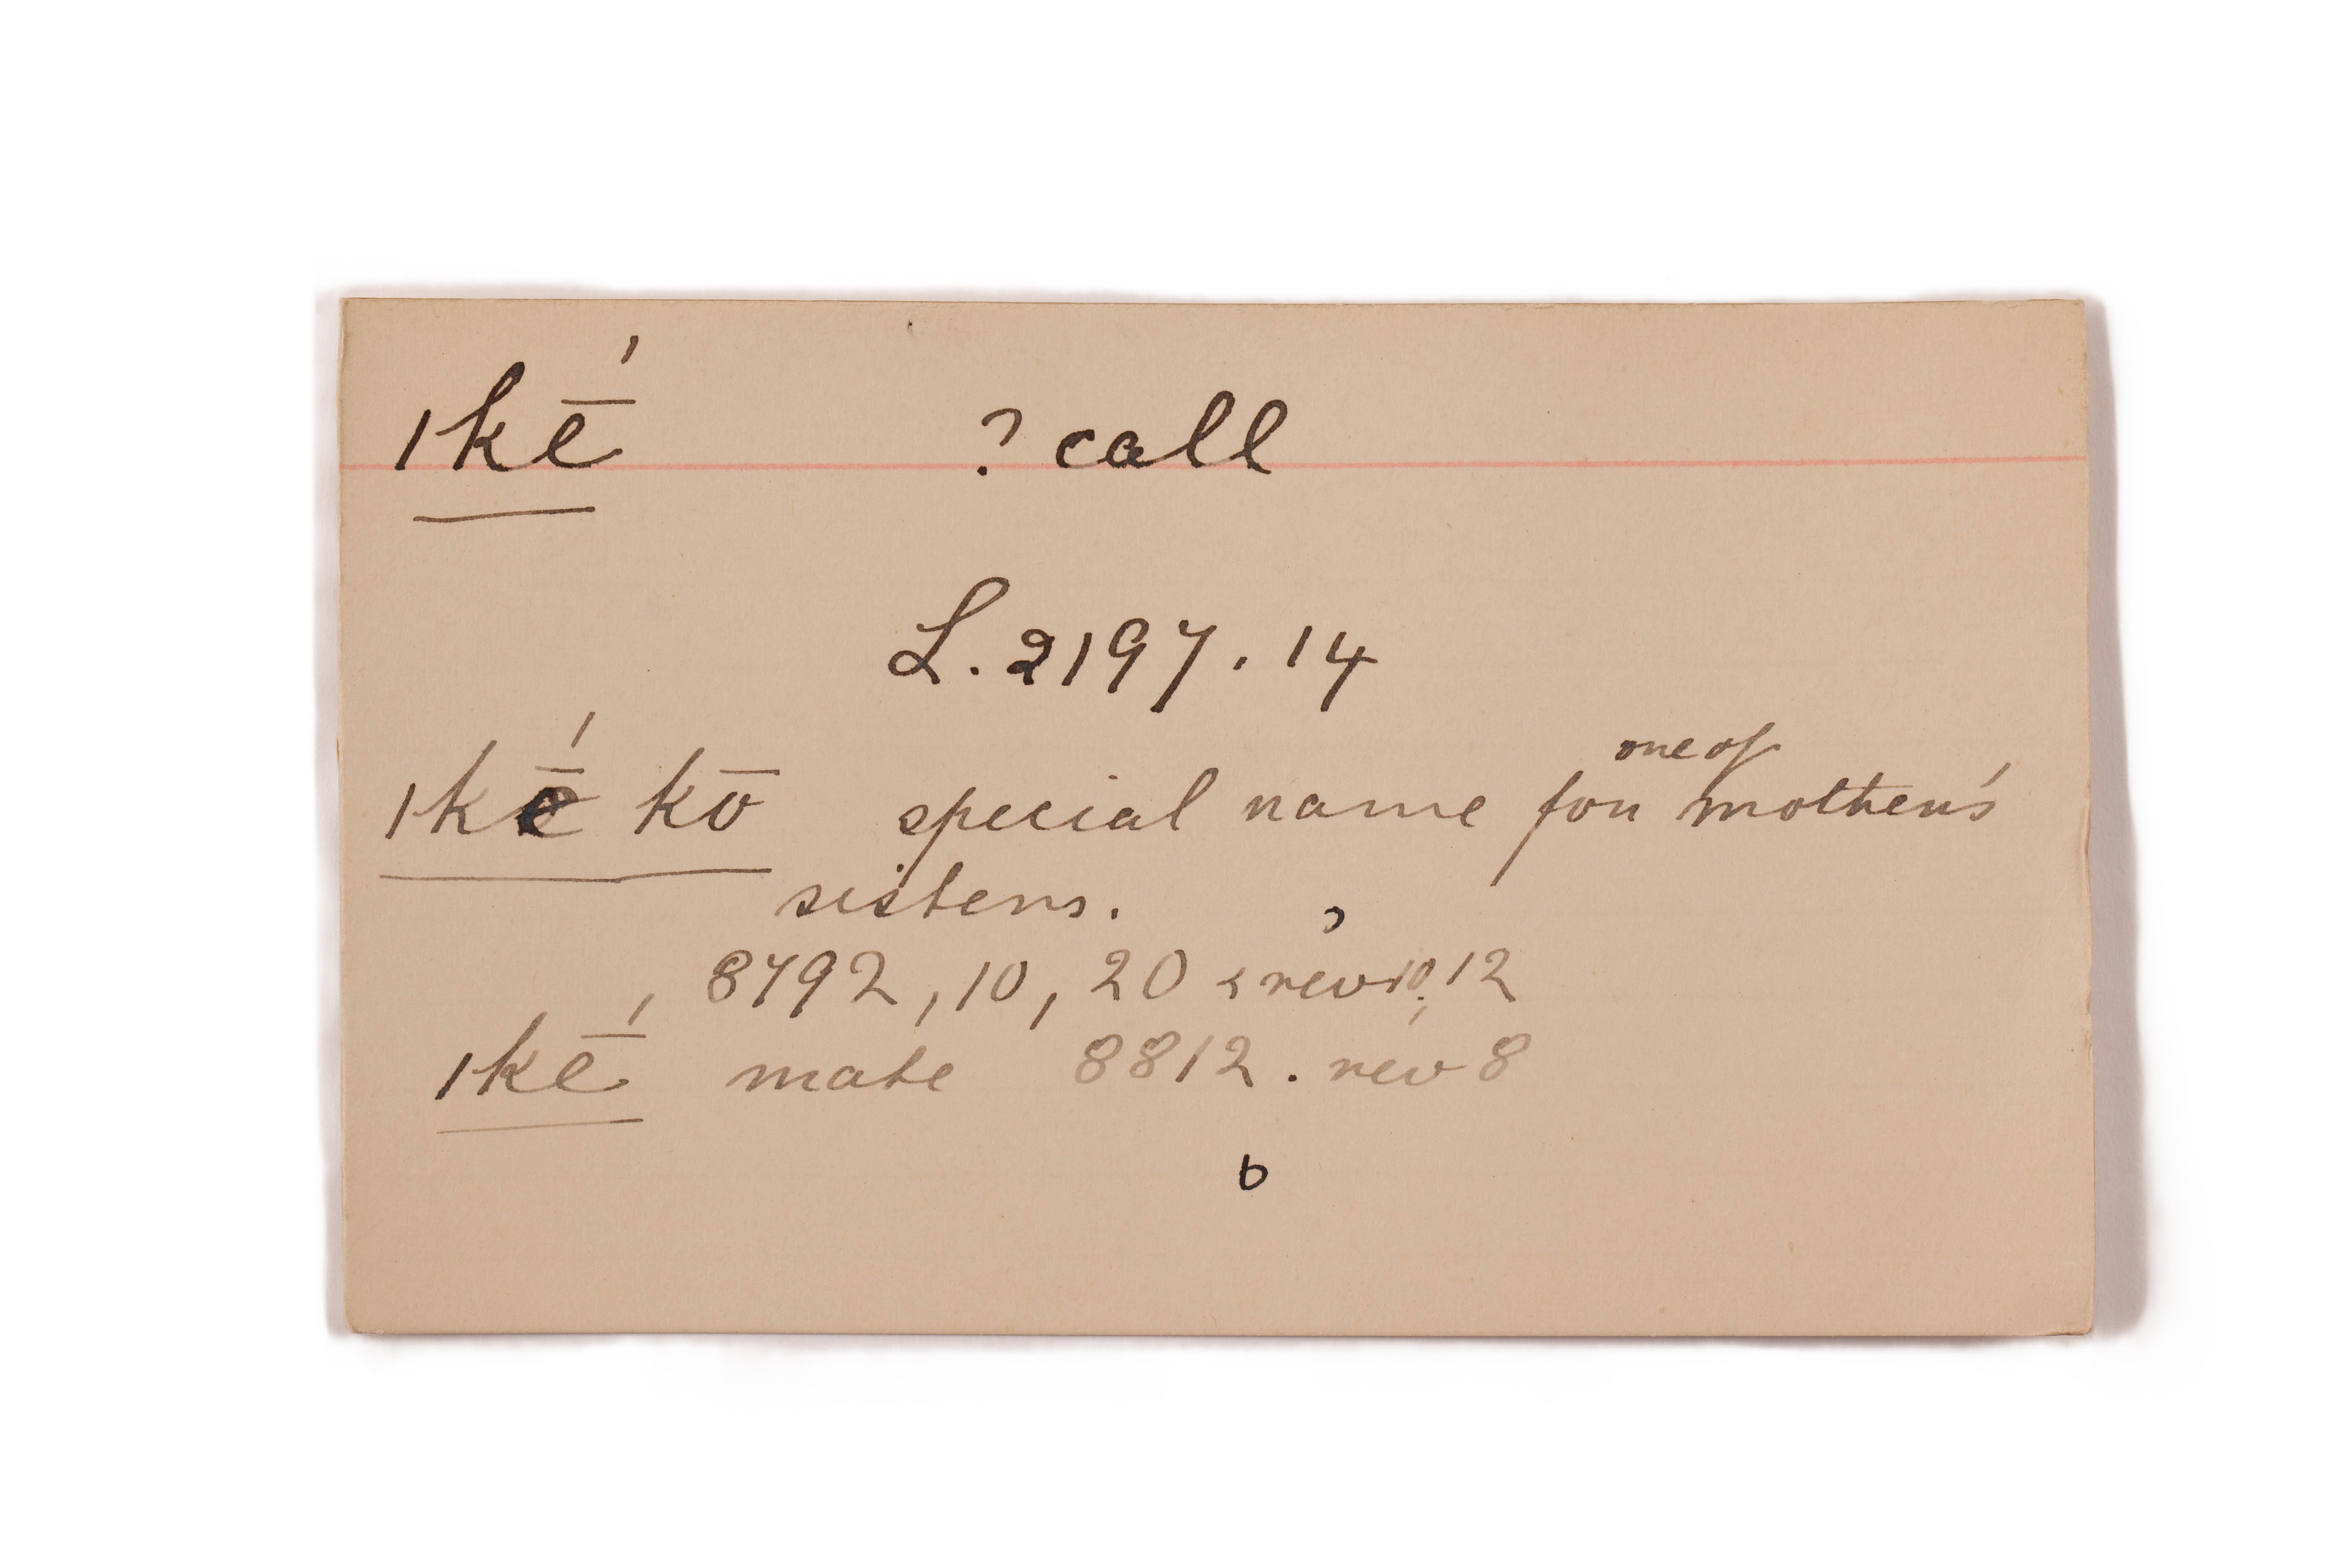 ǀkḗ ? call
L. 2197. 14
ǀkḗ kō special name for one of mother's
sisters.
8792, 10, 20 & rev 10, 12
ǀkḗ mate 8812. rev 8
b